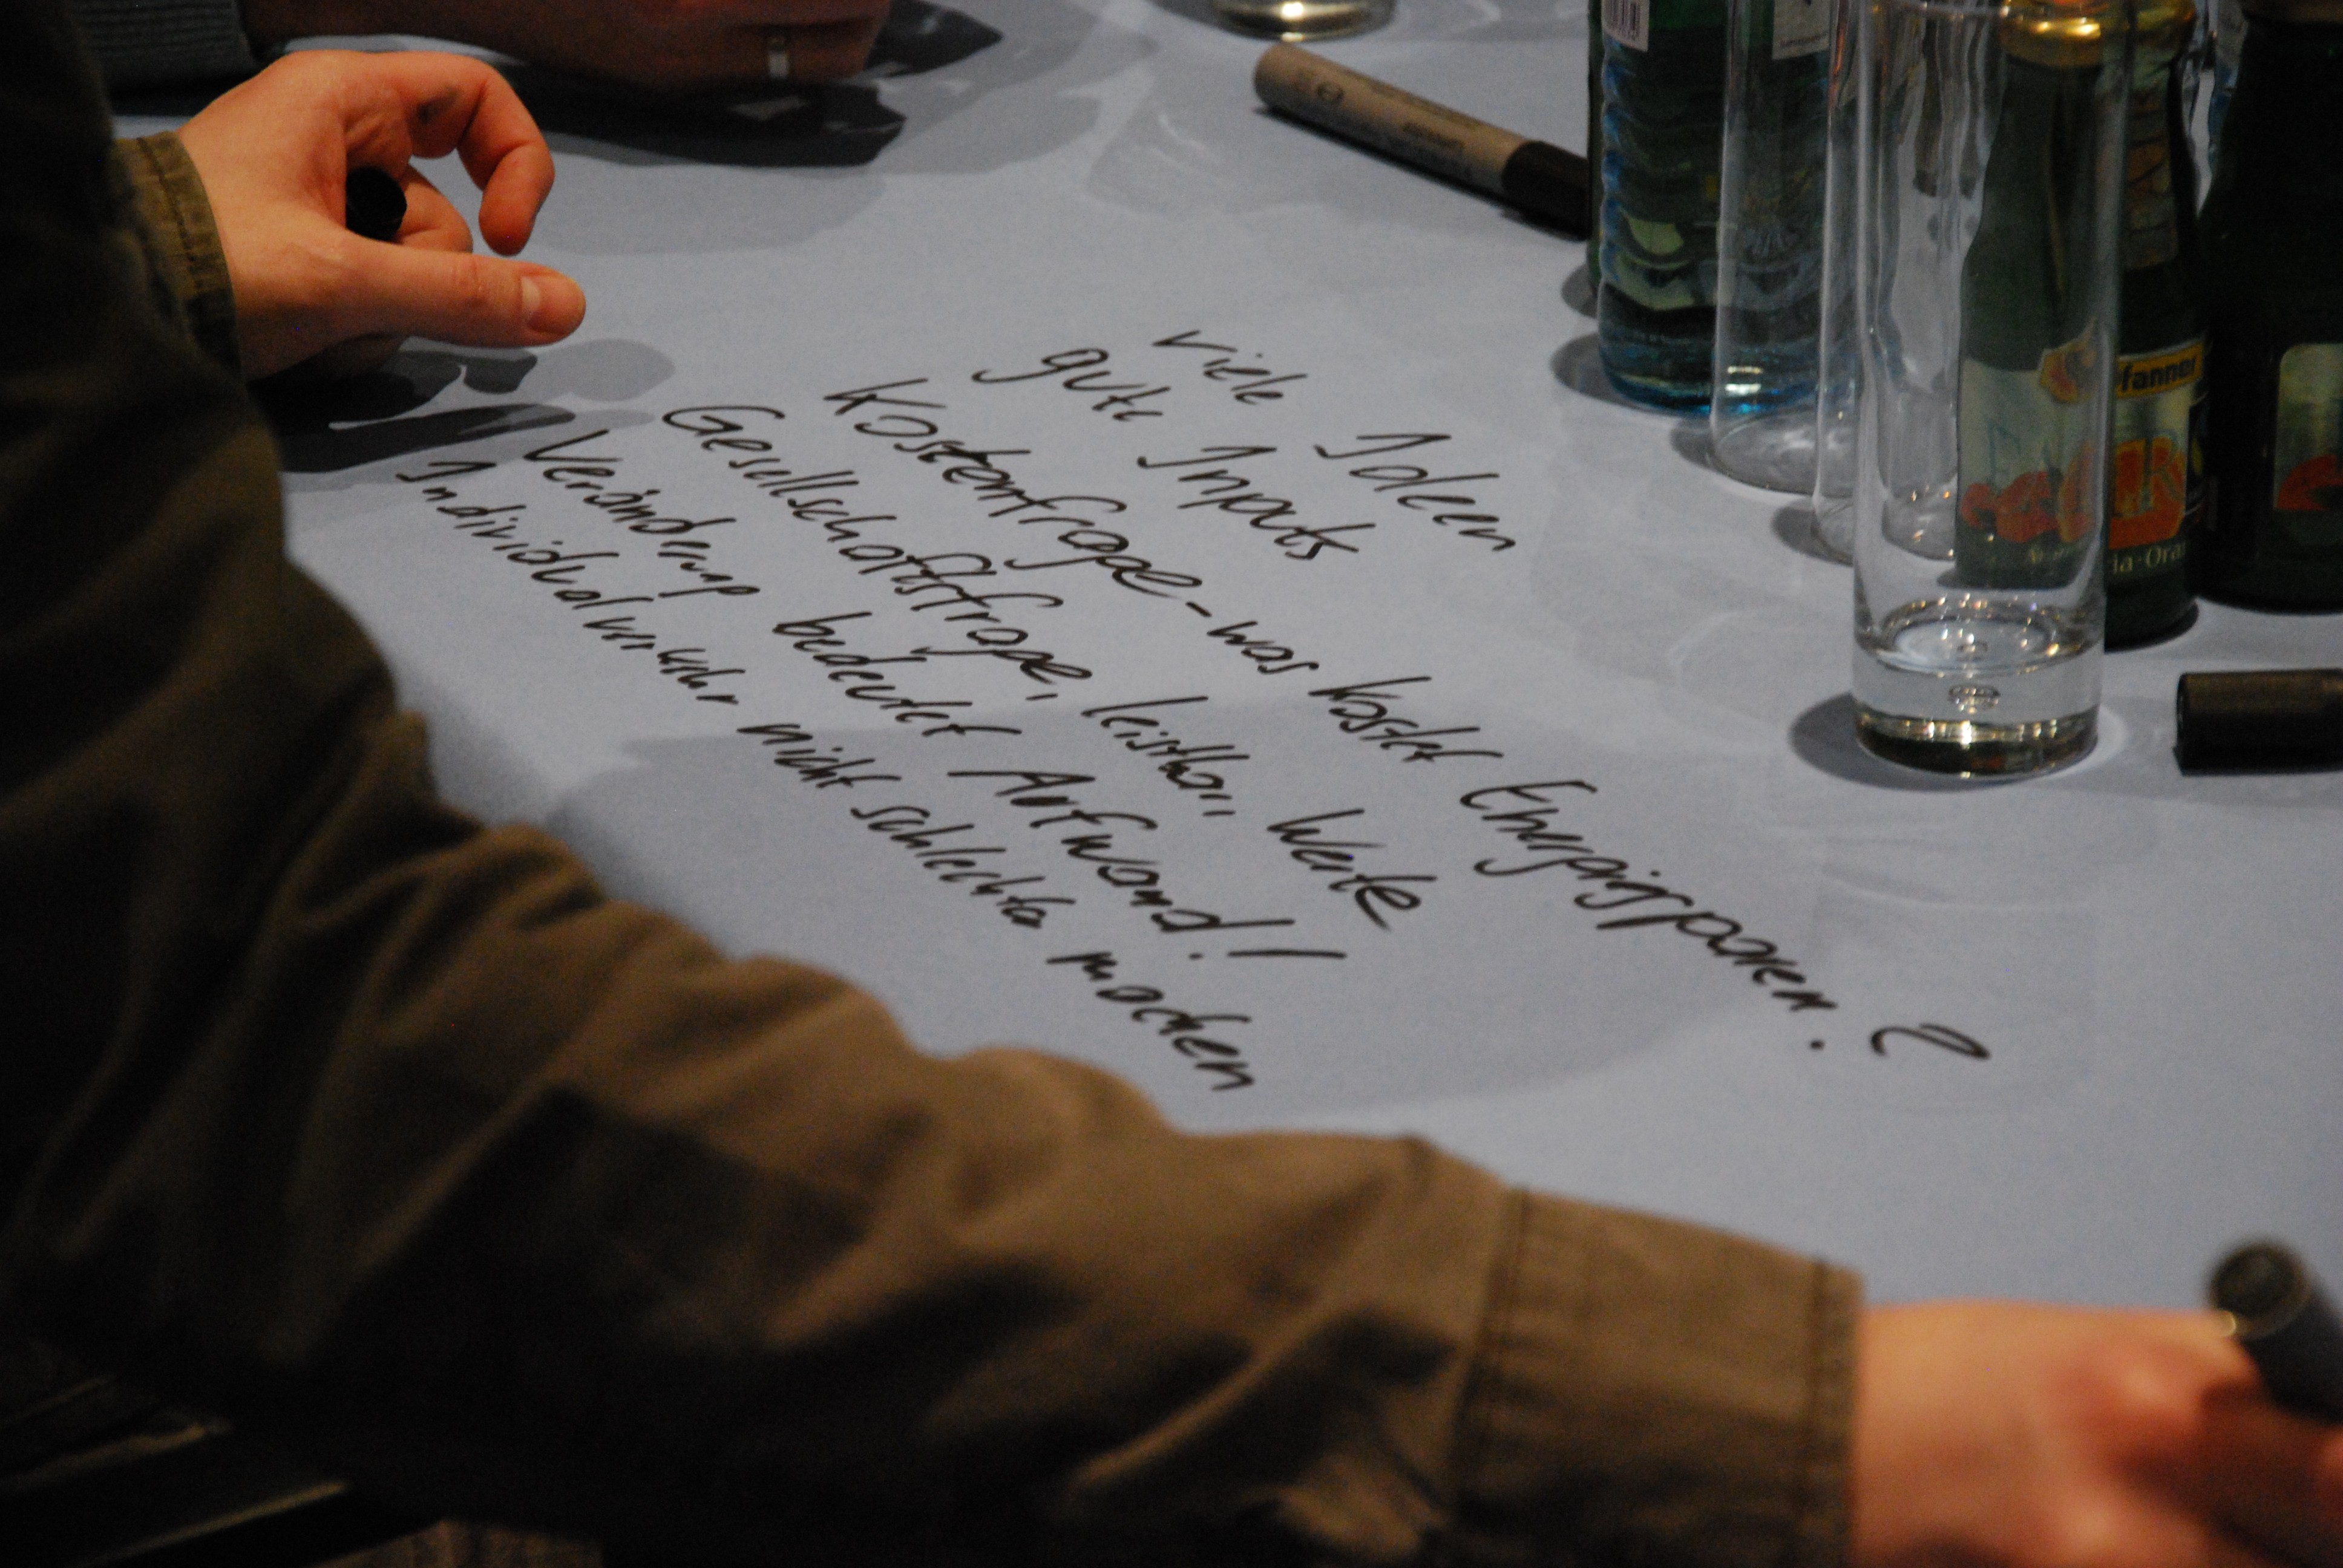 viele Ideen
gute Inputs
Kostenfrage - was kostet Energiesparen?
Gesellschaftsfrage, leistbar, Werte
Veränderung bedeutet Aufwand!
Individualverkehr nicht schlechter machen
fanner
ia·Ora